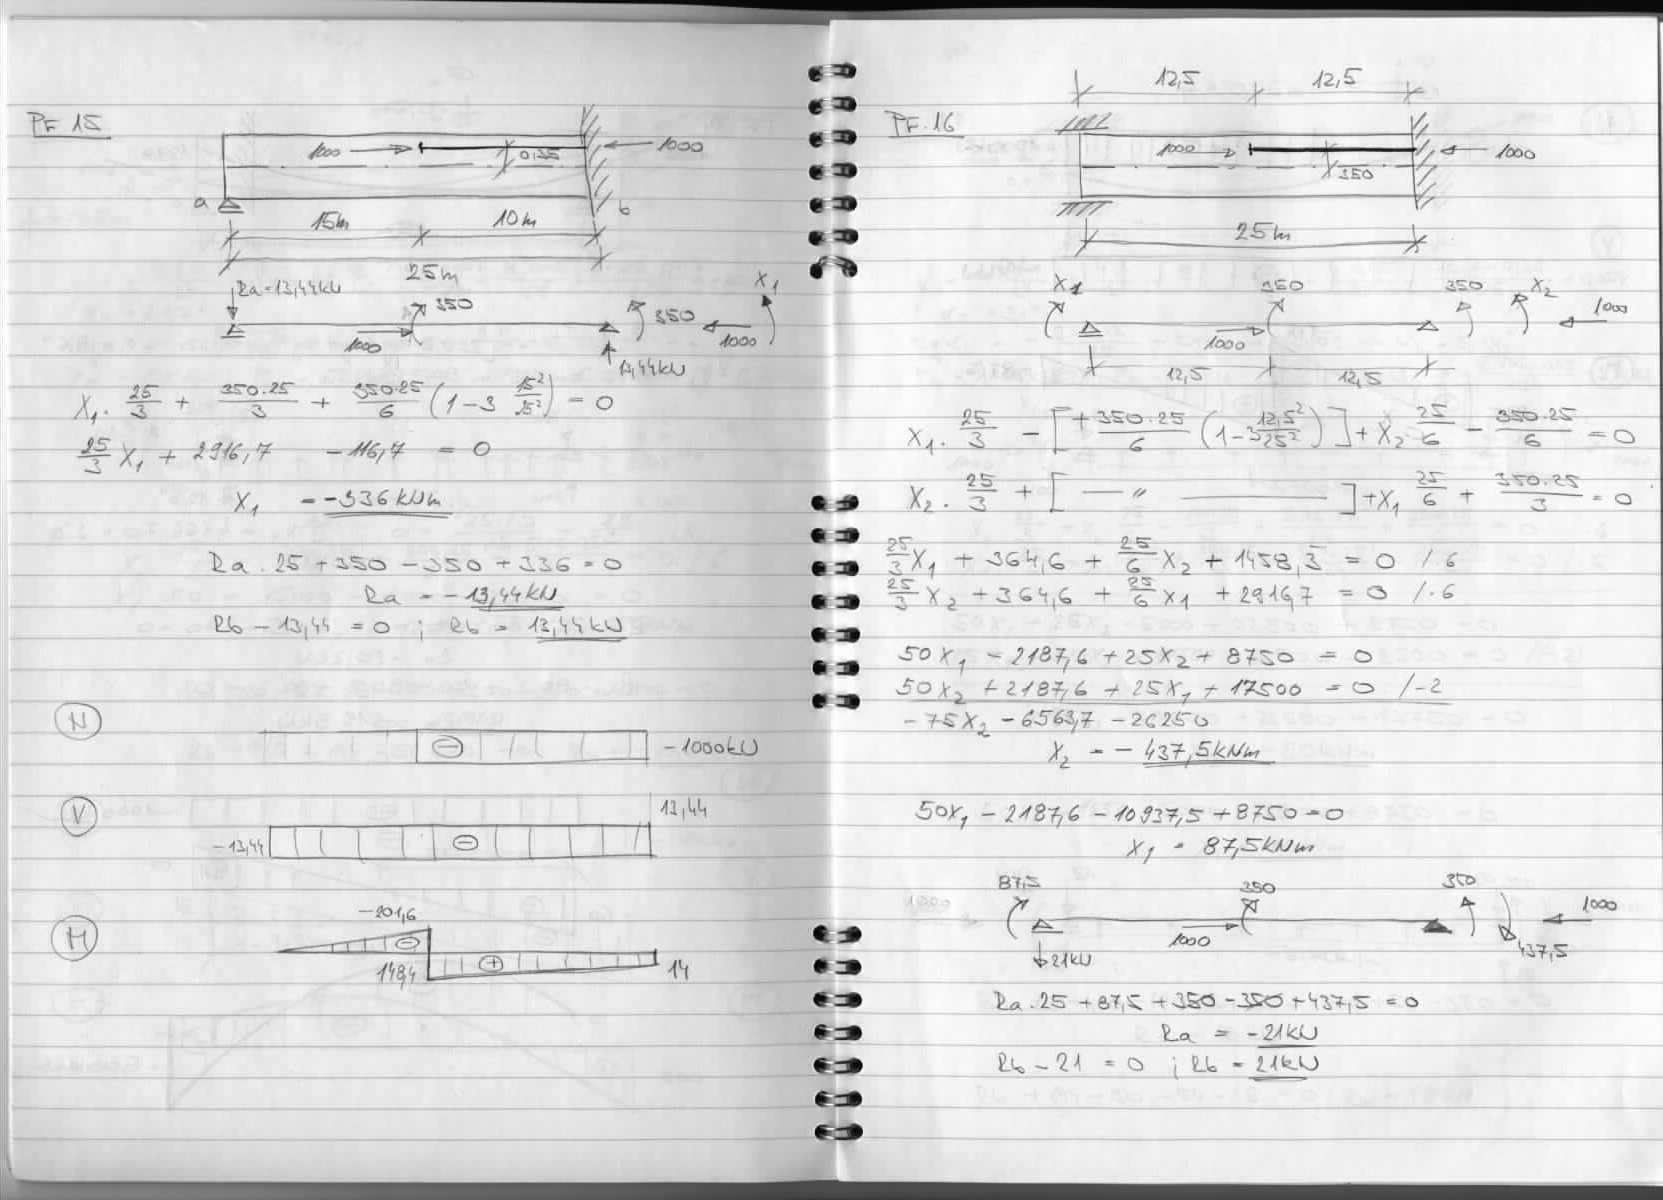 PŘ 15
1000
0,35
1000
a
b
15m
10m
25m
Ra=13,44kN
350
1000
350
1000
X₁
13,44kN
X₁ · 25/3 + 350·25/3 + 350·25/6 (1-3 15²/25²) = 0
25/3 X₁ + 2916,7 - 116,7 = 0
X₁ = -336 kNm
Ra · 25 + 350 - 350 + 336 = 0
Ra = -13,44 kN
Rb - 13,44 = 0 ; Rb = 13,44 kN
N
-
-1000kN
V
-13,44
-
13,44
M
-201,6
-
148,4
+
14
PŘ. 16
12,5
12,5
1000
350
1000
25m
X1
350
350
X₂
1000
1000
12,5
12,5
X₁ · 25/3 - [+ 350·25/6 (1-3 12,5²/25²)] + X₂ · 25/6 - 350·25/6 = 0
X₂ · 25/3 + [ — " — ] + X₁ 25/6 + 350·25/3 = 0
25/3 X₁ + 364,6 + 25/6 X₂ + 1458,3 = 0 /·6
25/3 X₂ + 364,6 + 25/6 X₁ + 2916,7 = 0 /·6
50X₁ - 2187,6 + 25X₂ + 8750 = 0
50X₂ + 2187,6 + 25X₁ + 17500 = 0 /-2
-75X₂ - 6563,7 - 26250
X₂ = - 437,5 kNm
50X₁ - 2187,6 - 10937,5 + 8750 = 0
X₁ = 87,5 kNm
87,5
350
350
1000
1000
21kN
437,5
Ra · 25 + 87,5 + 350 - 350 + 437,5 = 0
Ra = -21kN
Rb - 21 = 0 ; Rb = 21kN